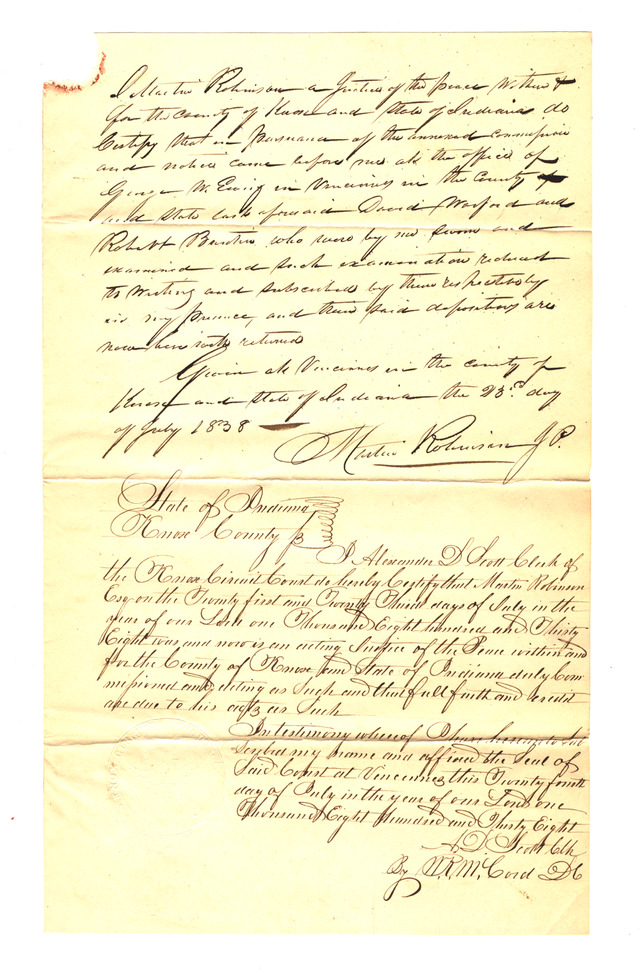 I Martin Robinson a Justice of the peace within &
for the county of Knox and State of Indiana do
Certify that in pursuance of the annexed commission
and notice came before me at the office of
George W. Ewing in Vincennes in the county
and state last aforesaid David Warford and
Robert Buntin who were by me sworn and
examined and such examination reduced
to writing and subscribed by them respectively
in my presence, and their said depositions are
now here with returned
Given at Vincennes in the county of
Knox and State of Indiana the 23rd day
of July 1838
Martin Robinson J P.
State of Indiana
Knox County ss
I Alexander D Scott Clerk of
the Knox Circuit Court do hereby Certify that Martin Robinson
Esq on the Twenty first and Twenty Third days of July in the
year of our Lord one Thousand Eight hundred and Thirty
Eight was and now is an acting Justice of the Peace within and
for the County of Knox and State of Indiana duly Com
missioned and acting as Such and that full faith and credit
are due to his acts as Such
In testimony whereof I have hereunto sub
scribed my name and affixed the Seal of
Said Court at Vincennes this Twenty fourth
day of July in the year of our Lord one
Thousand Eight Hundred and Thirty Eight
A. D. Scott Clk
By McCord DC